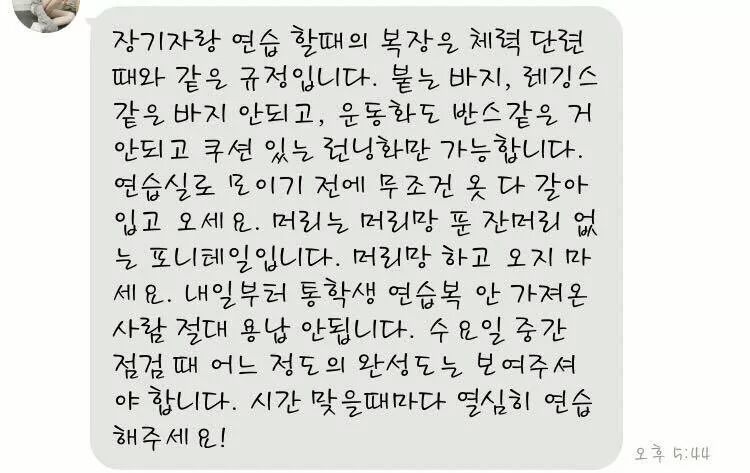 장기자랑 연습 할때의 복장은 체력 단련
때와 같은 규정입니다. 붙는 바지, 레깅스
같은 바지 안되고, 운동화도 반스같은 거
안되고 쿠션 있는 런닝화만 가능합니다.
연습실로 모이기 전에 무조건 옷 다 갈아
입고 오세요. 머리는 머리망 푼 잔머리 없
는 포니테일입니다. 머리망 하고 오지 마
세요. 내일부터 통학생 연습복 안 가져온
사람 절대 용납 안됩니다. 수요일 중간
점검 때 어느 정도의 완성도는 보여주셔
야 합니다. 시간 맞을때마다 열심히 연습
해주세요!
오후 5:44